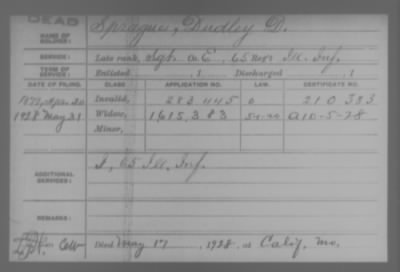 DEAD
NAME OF SOLDIER: Sprague, Dudley D.
SERVICE: Late rank, Sgt. Co. E, 65 Reg't Ill. Inf.
TERM OF SERVICE: Enlisted , 1 Discharged , 1
DATE OF FILING. CLASS. APPLICATION NO. LAW. CERTIFICATE NO.
1879, Invalid, 283 445 210 383
1928 May 31 Widow, 1615,383 A10-5-28
Minor,
ADDITIONAL SERVICES: I, 65 Ill. Inf.
REMARKS:
Died May 17, 1928, at Calif, Mo.